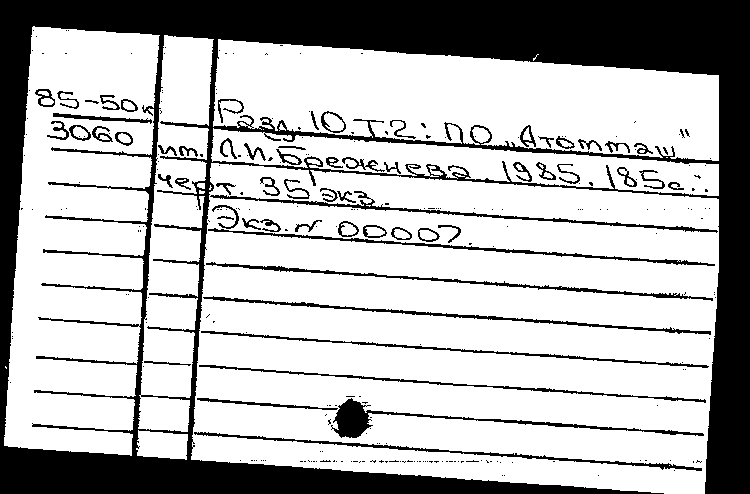 85-50к
3060
Разд. 10. Т.2: ПО „Атоммаш"
им. Л.И. Брежнева. 1985. 185с.:
черт. 35 экз.
Экз. N 00007.